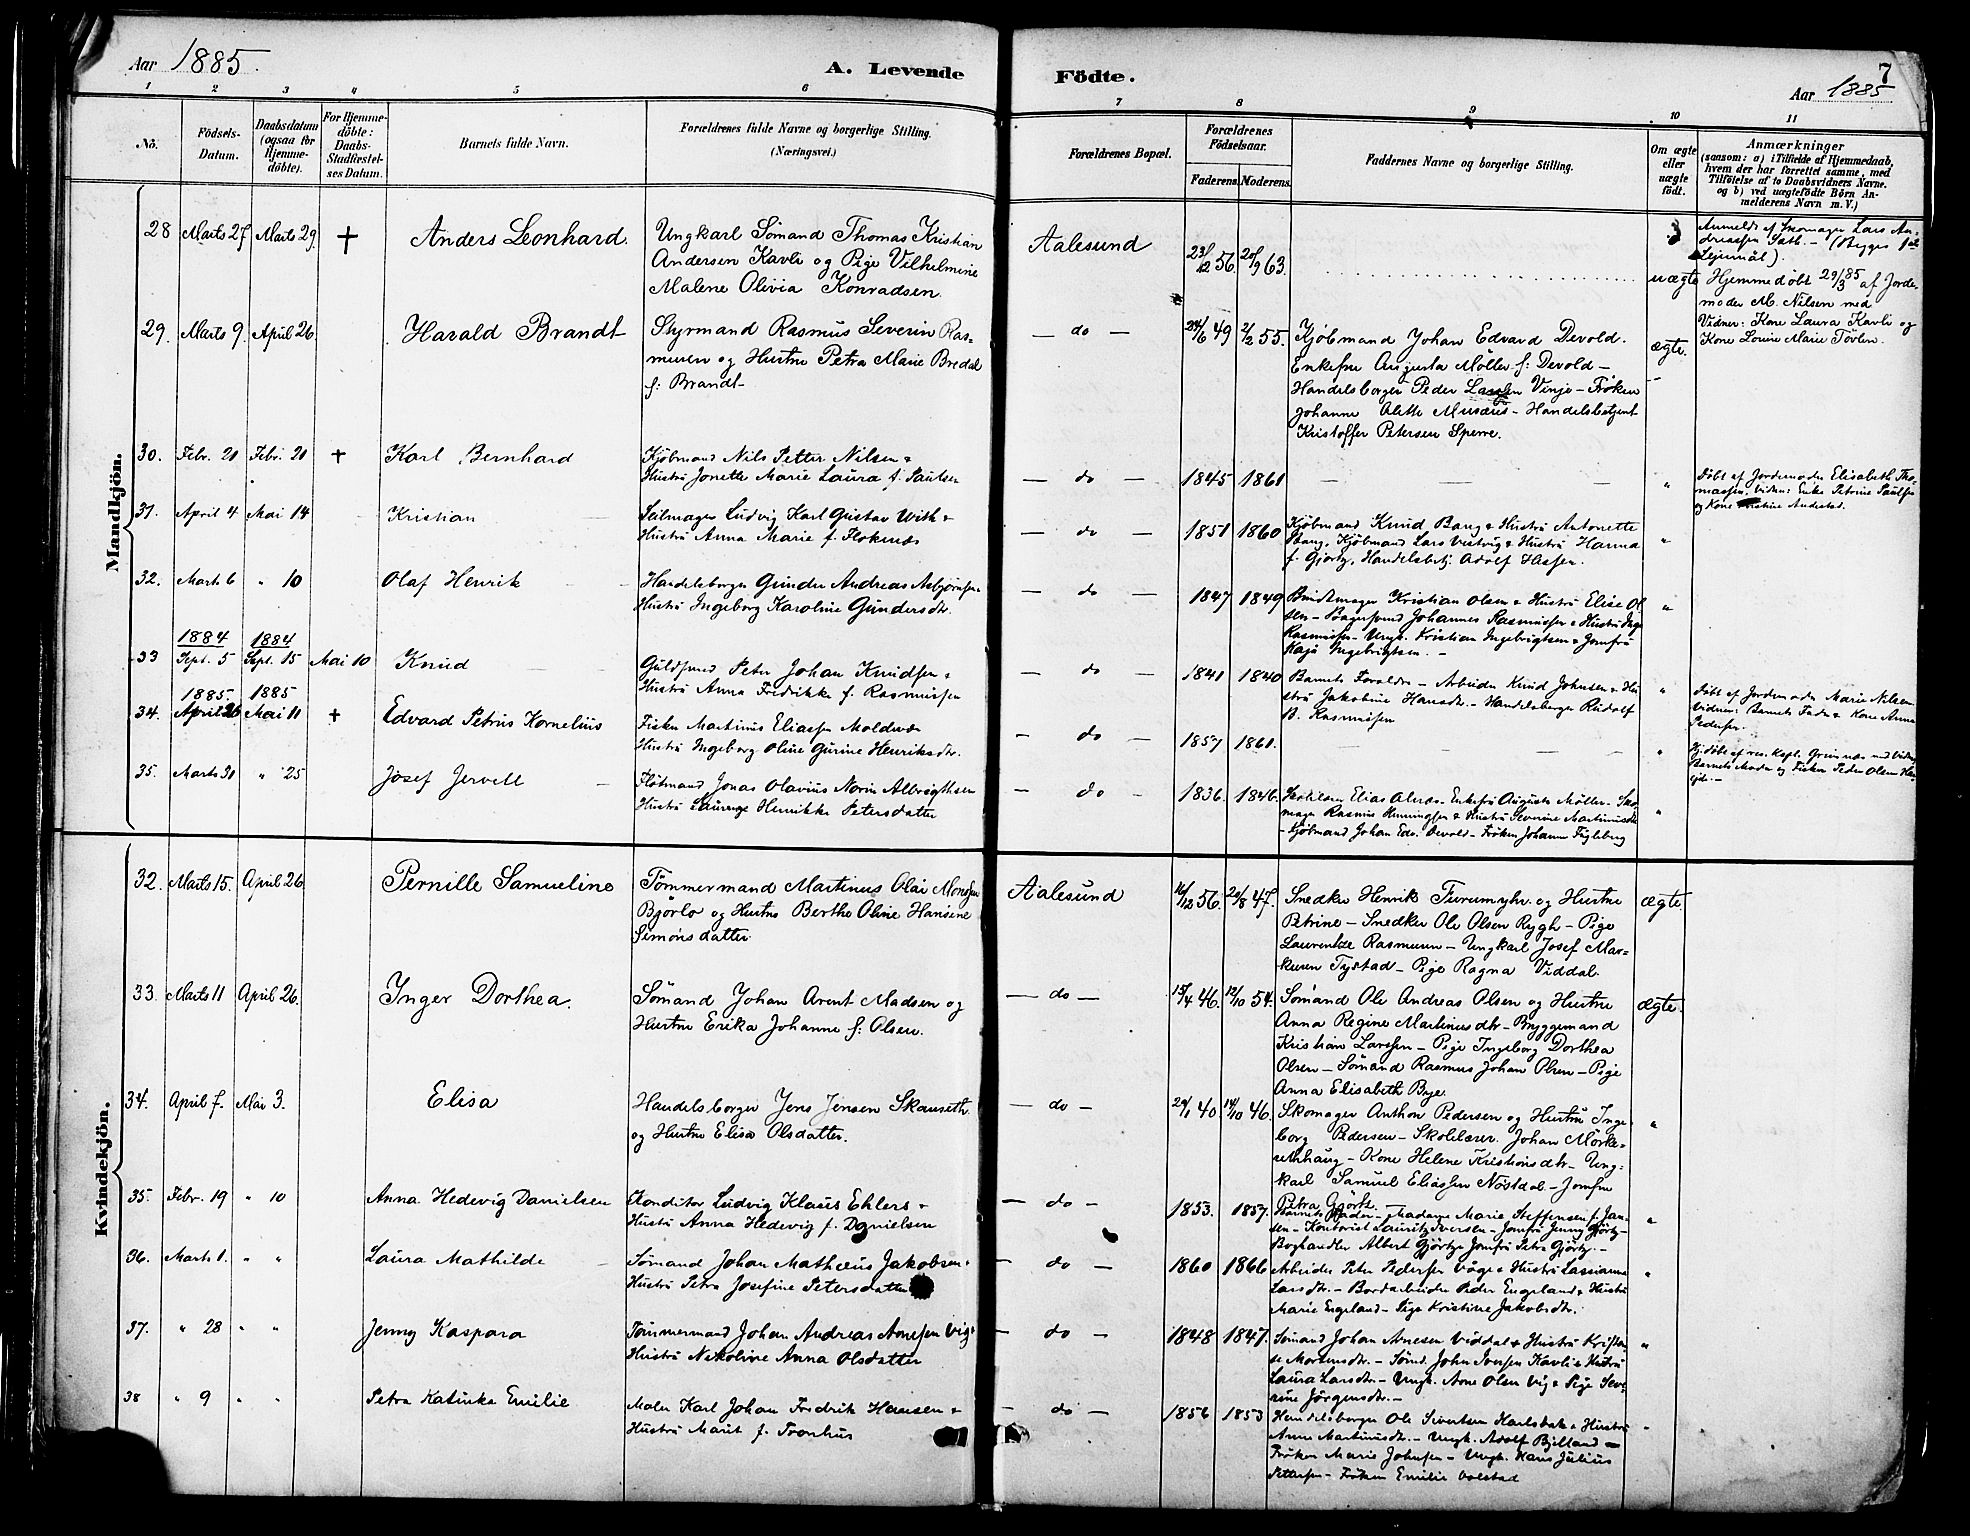 Aar 1885.
A. Levende
Födte.
7
Aar 1885
1 2 3 4 5 6 7 8 9 10 11
No.
Födsels-
Datum.
Daabsdatum
(ogsaa for
Hjemme-
døbte).
For Hjemme-
döbte:
Daabs-
Stadfæstel-
ses Datum.
Barnets fulde Navn.
Forældrenes fulde Navne og borgerlige Stilling.
(Næringsvei.)
Forældrenes Bopæl.
Forældrenes
Födselsaar.
Faderens. Moderens.
Faddernes Navne og borgerlige Stilling.
Om ægte
eller
uægte
födt.
Anmærkninger
(saasom: a) i Tilfælde af Hjemmedaab,
hvem der har forrettet samme, med
Tilföielse af to Daabsvidners Navne.
og b) ved uægtefödte Börn An-
melderens Navn m. V.)
Mandkjön.
28 Marts 27 Marts 29 + Anders Leonhard.
Ungkarl Sömand Thomas Kristian
Andersen Kavli og Pige Vilhelmine
Malene Olivia Konradsen.
Aalesund 23/12 56. 20/9 63. uægte
Anmeldt af Skomager Lars An-
dreassen Sætb. – (Begges 1ste
Lejermål).
Hjemmedøbt 29/3 85 af Jorde-
moder M. Nilsen med
Vidner: Kone Laura Kavli og
Kone Lovise Marie Tövlen.
29. Marts 9 April 26. Harald Brandt
Styrmand Rasmus Severin Ras-
mussen og Hustru Petra Marie Bredal
f: Brandt
– do – 24/6 49 2/2 55. ægte.
Kjöbmand Johan Edvard Devold.
Enkefru Augusta Möller f: Devold –
Handelsborger Peder Larsen Vinje – Fröken
Johanne Alette Musæus – Handelsbetjent
Kristoffer Petersen Sperre.
30. Febr. 20 Febr. 20 + Karl Bernhard
Kjöbmand Nils Petter Nilsen &
Hustru Jonette Marie Laura f. Paulsen
– do – 1845 1861 – – – "
Døbt af Jordemoder Elisabeth Tho-
massen. Vidner: Enke Petrine Paulsen
og Kone
31. April 4 Mai 14 Kristian
Seilmager Ludvig Karl Gustav With &
Hustru Anna Marie f. Floknæs
– do – 1851 1860 "
Kjöbmand Knud Bang & Hustru Antonette
Bang, Kjöbmand Lars Vestvig & Hustru Hanna
f. Gjørtz, Handelsbetj. Adolf Hassen.
32. Marts 6 " 10 Olaf Henrik
Handelsborger Gunder Andreas Asbjørnsen &
Hustru Ingeborg Karoline Gundersdtr.
– do – 1847 1849 "
Buntmager Kristian Olsen & Hustru Elise Ol-
sen – Bagersvend Johannes Rasmussen & Hustru Inga
Rasmussen – Ungk. Kristian Ingebrigtsen & Jomfru
Kaja Ingebrigtsen. –
33 1884 Sept. 5 1884 Sept. 15 Mai 10 Knud
Guldsmed Peter Johan Knudsen &
Hustru Anna Fredrikke f. Rasmussen
– do – 1841 1840 "
Barnets Forældre – Arbeider Knud Johnsen & Hu-
stru Jakobine Hansdtr. – Handelsborger Rudolf
B. Rasmussen
Døbt af Jordemoder Marie Nilsen
Vidner: Barnets Fader & Kone Anna
Pedersen.
34. 1885. April 26 1885 Mai 11 + Edvard Petrus Kornelius
Fisker Martinus Eliassen Moldvær
Hustru Ingeborg Oline Gurine Henriksdtr.
– do – 1857 1861. – – "
Hj. døbt af res. Kapl. Grimnæs med Vidner
Barnets Moder og Fisker Peder Olsen
35. Marts 30 " 25 Josef Jervell
Fløtmand Jonas Olavius Norin Albrigthsen
Hustru Laurenze Henrikke Petersdatter
– do – 1836. 1846. "
Elias Alnæs – Enkefru Augusta Möller – Sko-
mager Rasmus Henningsen & Hustru Severine Martinusdtr
– Kjöbmand Johan Edv. Devold – Fröken Johanne Figleberg
Kvindekjön.
32. Marts 15. April 26. Pernille Samueline
Tömmermand Martinus Olai Monssen
Bjørlo og Hustru Berthe Oline Hansine
Simonsdatter.
Aalesund 16/12 56. 20/8 47. ægte.
Snedker Henrik Furumyhr. og Hustru
Petrine – Snedker Ole Olsen Rygh – Pige
Laurentze Rasmussen – Ungkarl Josef Mar-
kusen Tystad – Pige Ragna Viddal.
33. Marts 11 April 26. Inger Dorthea.
Sömand Johan Arent Madsen og
Hustru Erika Johanne f: Olsen.
– do – 15/4 46. 12/10 54. ægte.
Sömand Ole Andreas Olsen og Hustru
Anna Regine Martinusdtr – Bryggemand
Kristian Larssen – Pige Ingeborg Dorthea
Olsen – Sömand Rasmus Johan Olsen – Pige
Anna Elisabeth Bye.
34. April 7. Mai 3. Elisa
Handelsborger Jens Jensen Skauseth
og Hustru Elisa Olsdatter.
– do – 29/1 40. 14/10 46. "
Skomager Anthon Pedersen og Hustru Inge-
borg Pedersen – Skolelærer Johan Mörke-
sethhaug – Kone Helene Kristiansdtr – Ung-
karl Samuel Eliassen Nöstdal – Jomfru
Petra Gjørtz.
35. Febr. 19 " 10 Anna Hedevig Danielsen
Konditor Ludvig Klaus Ehlers &
Hustru Anna Hedevig f. Danielsen
– do – 1853. 1857. "
Barnets Fader – Madame Marie Steffensen f. Jan-
sen – Kontorist Lauritz Iversen – Jomfru Jenny Gjørtz –
Boghandler Albert Gjørtz & Jomfru Petra Gjørtz. –
36. Marts 1. " " Laura Mathilde
Sömand Johan Mathæus Jakobsen &
Hustru Petra Josefine Petersdatter
– do – 1860 1866 "
Arbeider Peter Pedersen Våge & Hustru Lassianna
Larsdtr. – Bordarbeider Peder Engeland & Hustru
Marie Engeland – Pige Kristine Jakobsdtr.
37. " 28 " " Jenny Kaspara
Tömmermand Johan Andreas Arnesen Vig &
Hustru Nikoline Anna Olsdatter
– do – 1848 1847. "
Sömand Johan Arnesen Viddal & Hustru Kristi-
ne Mortensdtr. – Sömd. John Iversen Kavli & Hustru
Laura Larsdtr. – Ungk. Arne Olsen Vig & Pige Seve-
rine Jörgensdtr. –
38 " 9 " " Petra Katinka Emilie
Maler Karl Johan Fredrik Hansen &
Hustru Marit f. Tronhus
– do – 1856 1853 "
Handelsborger Ole Sivertsen Karlsbak & Hustru
Anne Martinusdtr. – Ungk. Adolf Bjelland –
Fröken Marie Johnsen – Ungk. Hans Julius
Pettersen – Fröken Emilie Volstad